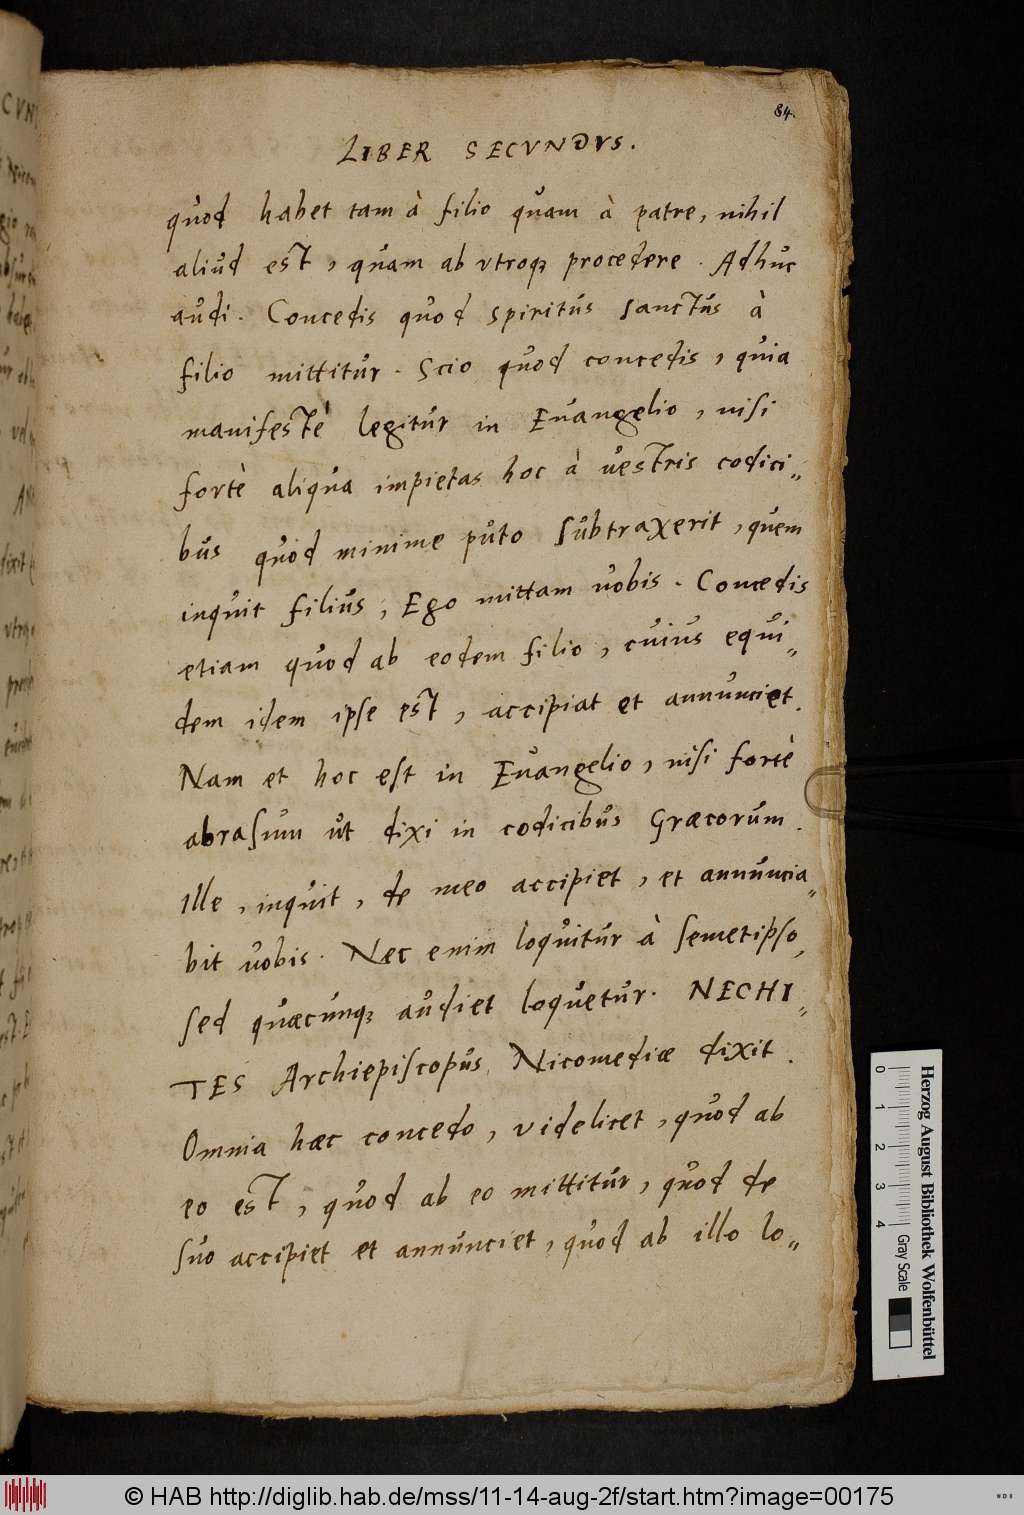 84.
LIBER SECVNDVS.
quod habet tam à filio quam à patre, nihil
aliud est, quam ab vtroqꝫ procedere. Adhuc
audi. Concedis quod spiritus sanctus à
filio mittitur. Scio quod concedis, quia
manifestè legitur in Euangelio, nisi
fortè aliqua impietas hoc à uestris codici„
bus quod minime puto subtraxerit, quem
inquit filius, Ego mittam uobis. Concedis
etiam quod ab eodem filio, cuius equi„
dem idem ipse est, accipiat et annunciet.
Nam et hoc est in Euangelio, nisi fortè
abrasum ut dixi in codicibus Græcorum.
Ille, inquit, de meo accipiet, et annuncia„
bit uobis. Nec enim loquitur à semetipso,
sed quæcunqꝫ audiet loquetur. NECHI„
TES Archiepiscopus Nicomediæ dixit.
Omnia hæc concedo, videlicet, quod ab
eo est, quod ab eo mittitur, quod de
suo accipiet et annunciet, quod ab illo lo„
Herzog August Bibliothek Wolfenbüttel
0 1 2 3 4
Gray Scale
© HAB http://diglib.hab.de/mss/11-14-aug-2f/start.htm?image=00175